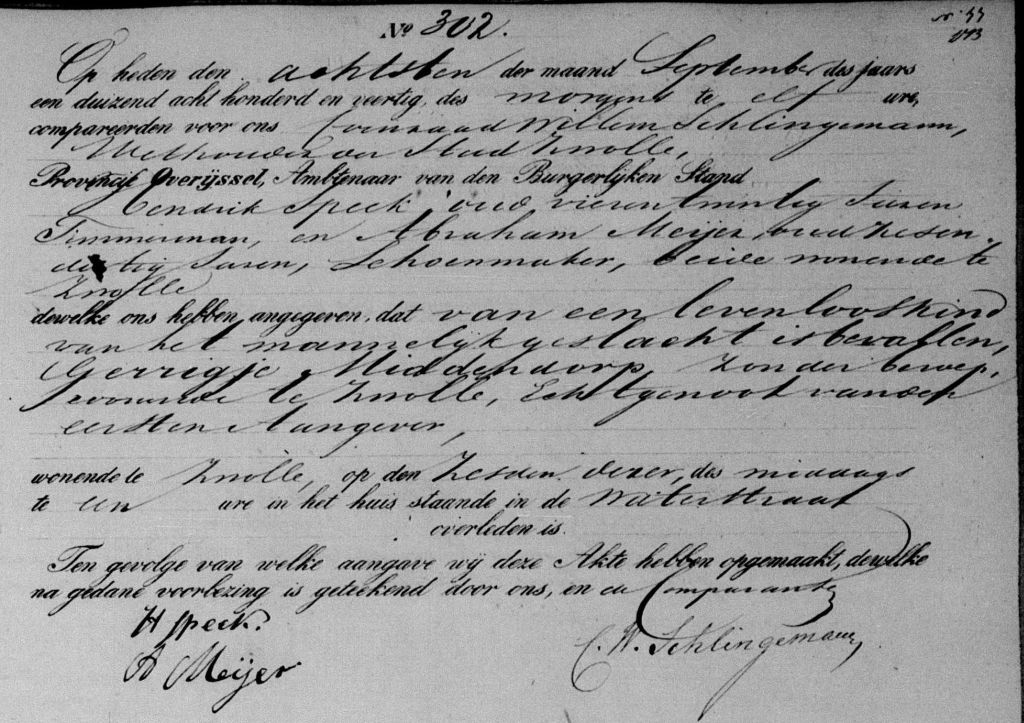 No 302.
Op heden den achtsten der maand September des jaars
een duizend acht honderd en veertig, des morgens te elf ure,
compareerden voor ons Coenraad Willem Schlingemann,
Wethouder der Stad Zwolle,
Provincie Overijssel, Ambtenaar van den Burgerlijken Stand
Hendrik Speek oud vierentwintig Jaren
Timmerman, en Abraham Meijer, oud zesen
dertig Jaren, Schoenmaker, beide wonende te
Zwolle
dewelke ons hebben angegeven, dat van een levenlooskind
van het mannelijk geslacht is bevallen,
Gerrigje Middendorp, Zonder beroep,
wonende te Zwolle, Echtgenoot van den
eersten Aangever,
wonende te Zwolle, op den Zesden dezer, des middags
te een ure in het huis staande in de Waterstraat
overleden is.
Ten gevolge van welke aangave wij deze Akte hebben opgemaakt, dewelke
na gedane voorlezing is geteekend door ons, en de Comparanten
H Speek.
A Meijer
C. W. Schlingemann,